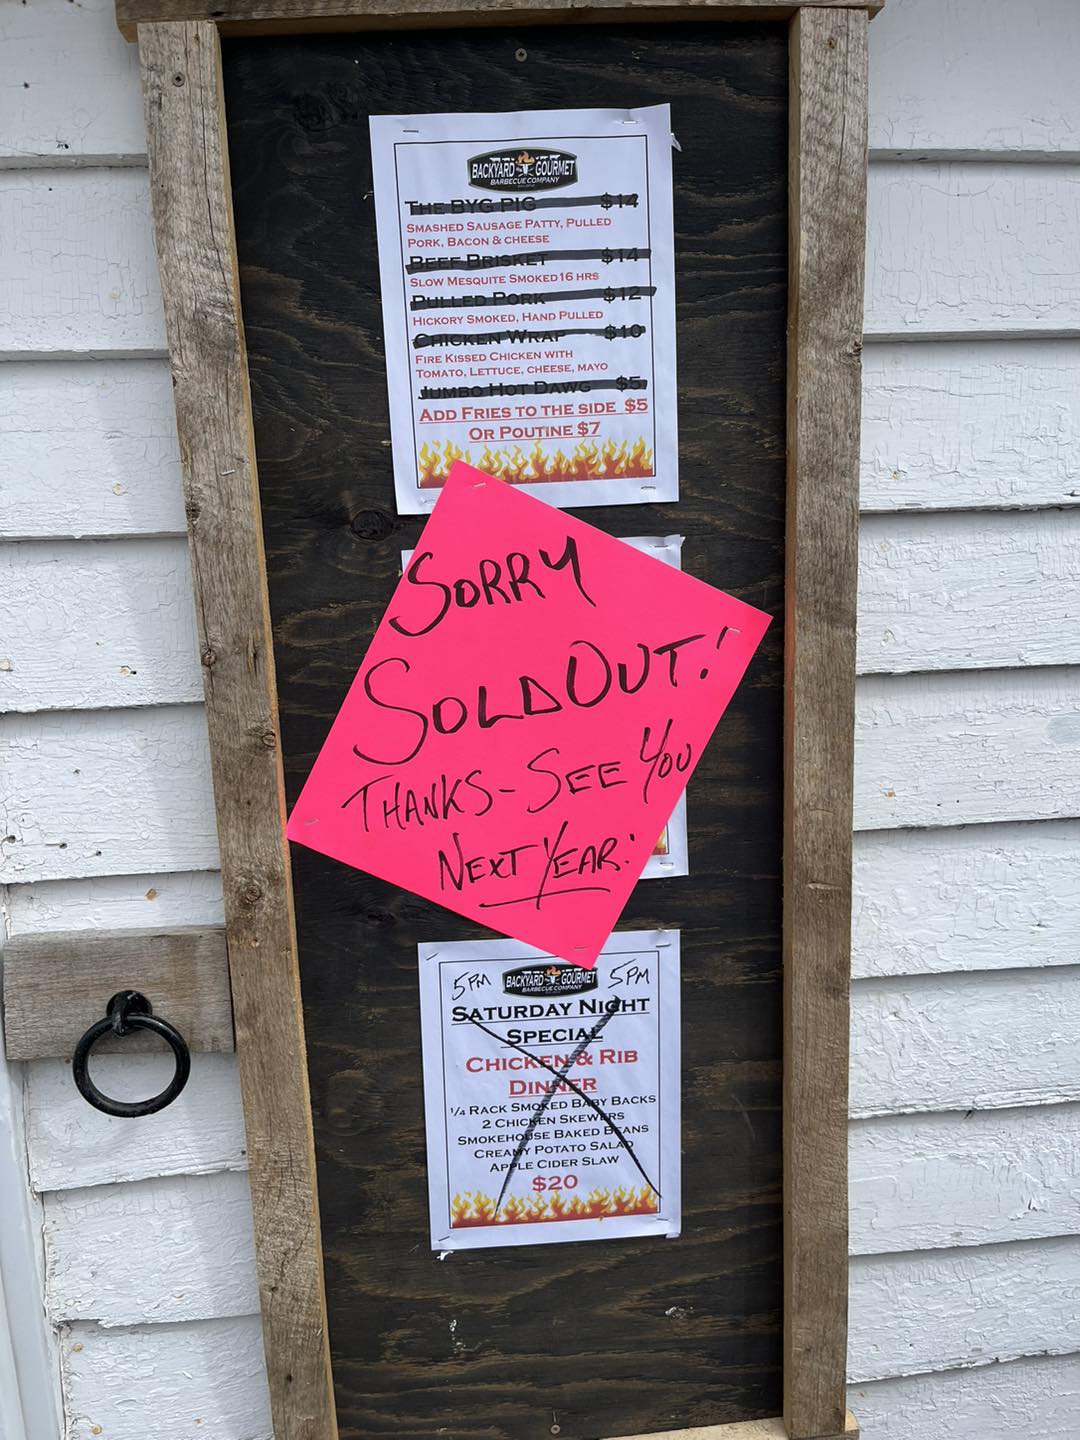 BACKYARD GOURMET
BARBECUE COMPANY
THE BYG PIG $14
SMASHED SAUSAGE PATTY, PULLED
PORK, BACON & CHEESE
BEEF BRISKET $14
SLOW MESQUITE SMOKED 16 HRS
PULLED PORK $12
HICKORY SMOKED, HAND PULLED
CHICKEN WRAP $10
FIRE KISSED CHICKEN WITH
TOMATO, LETTUCE, CHEESE, MAYO
JUMBO HOT DAWG $5
ADD FRIES TO THE SIDE $5
OR POUTINE $7
SORRY
SOLD OUT!
THANKS - SEE YOU
NEXT YEAR!
5PM BACKYARD GOURMET 5PM
BARBECUE COMPANY
SATURDAY NIGHT
SPECIAL
CHICKEN & RIB
DINNER
1/4 RACK SMOKED BABY BACKS
2 CHICKEN SKEWERS
SMOKEHOUSE BAKED BEANS
CREAMY POTATO SALAD
APPLE CIDER SLAW
$20